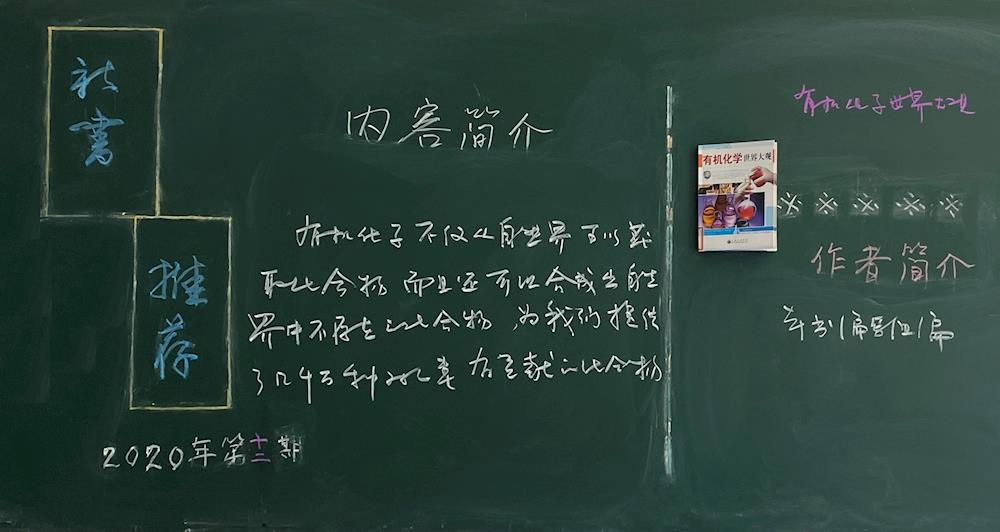 新书
推荐
2020年第十二期
内容简介
有机化学不仅从自然界可以获
取化合物 而且还可以合成出自然
界中不存在的化合物，为我们提供
了几千万种
的化合物
有机化学世界大观
有机化学
世界大观
※ ※ ※ ※ ※
作者简介
本书编委